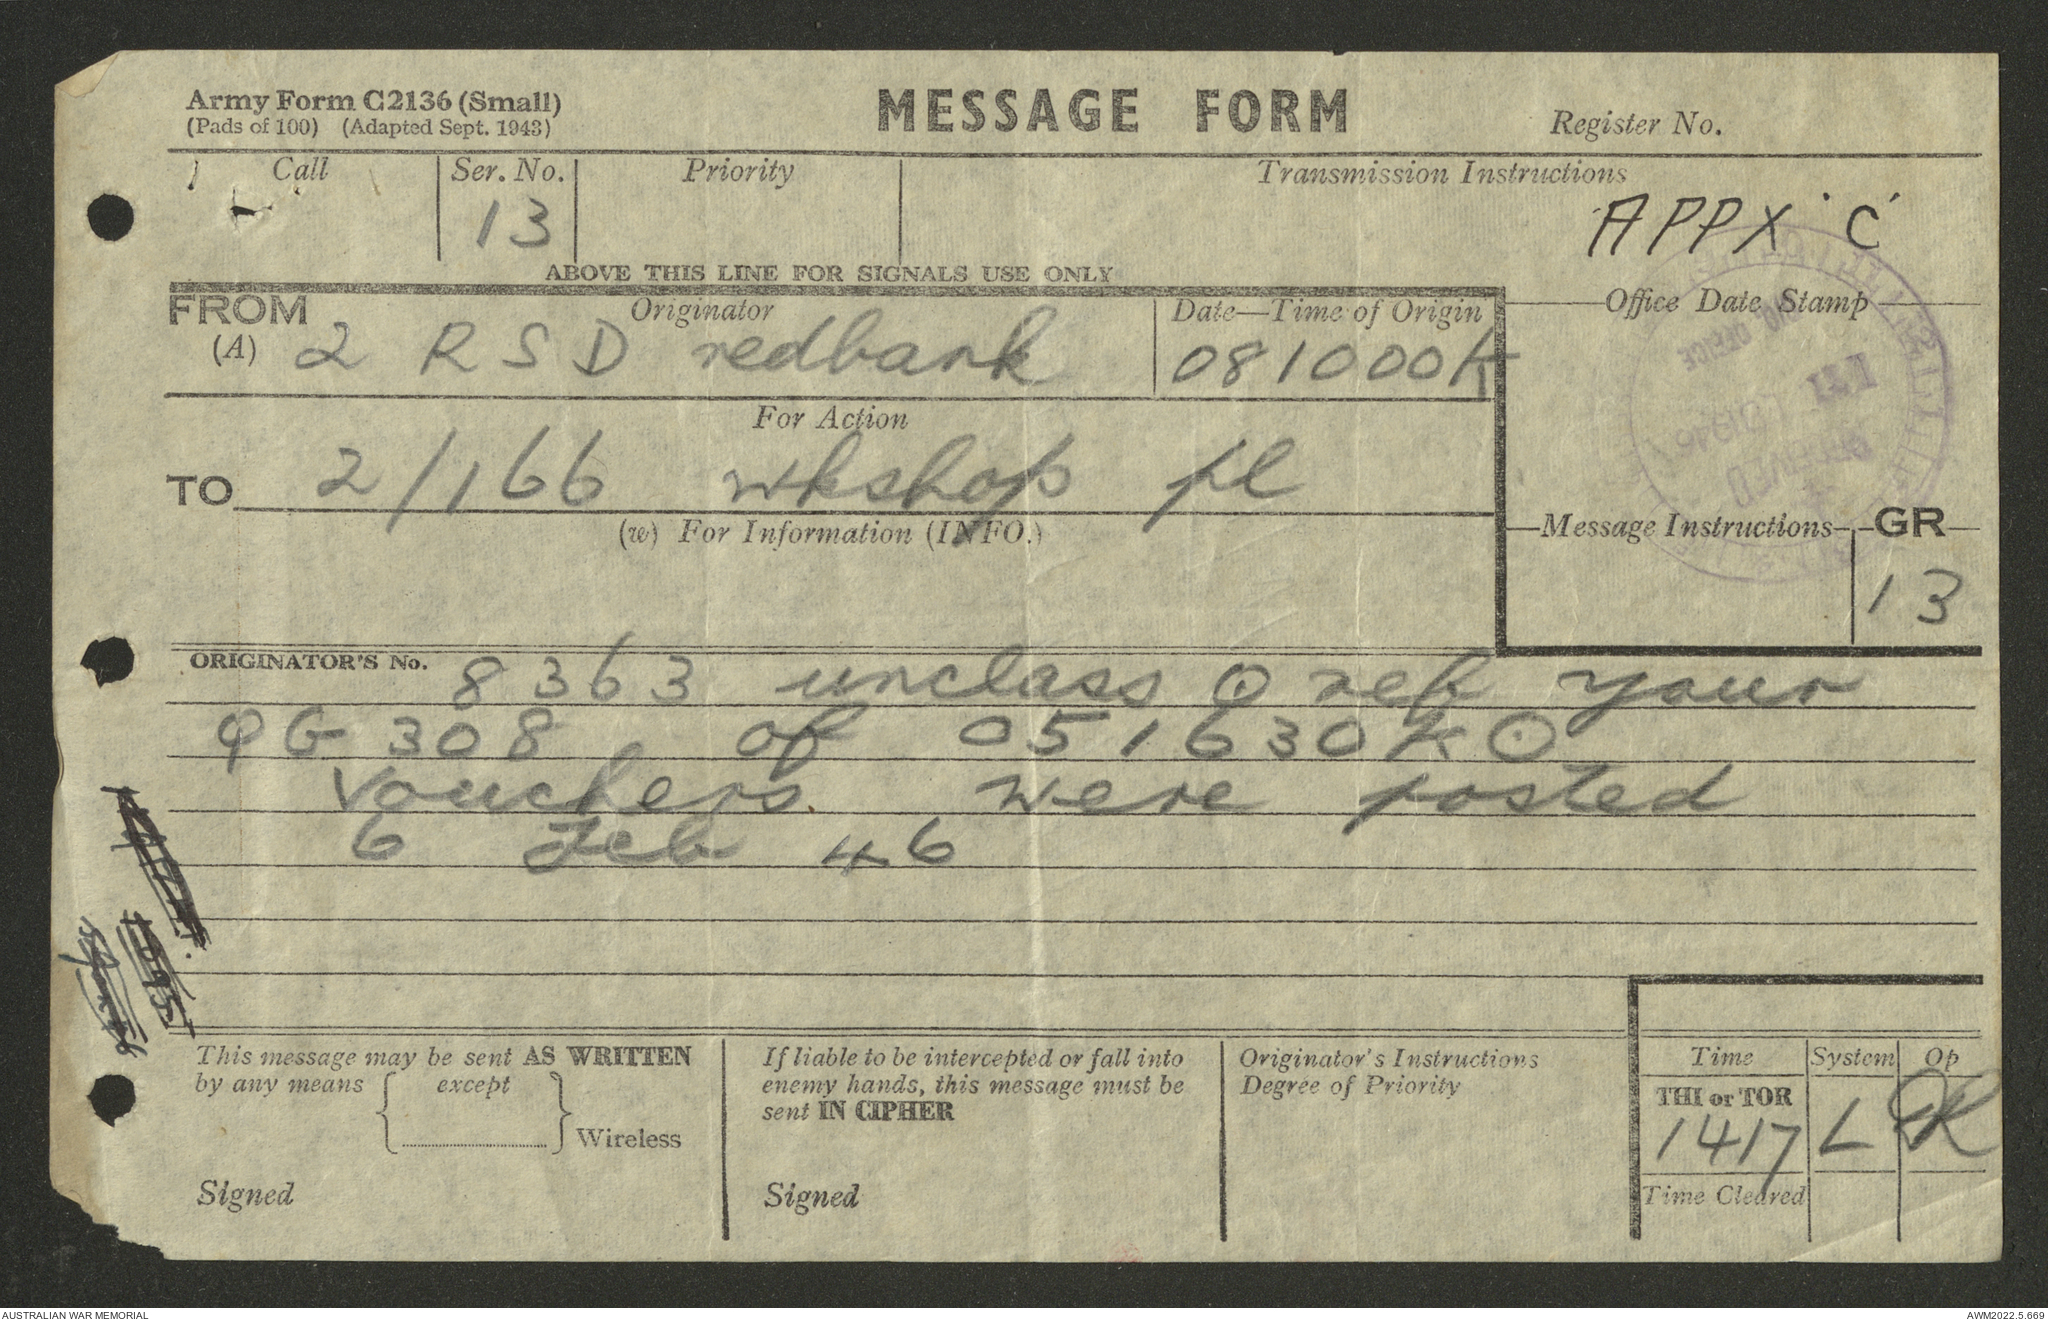 Army Form C2136 (Small)
(Pads of 100) (Adapted Sept. 1943)
MESSAGE FORM
Register No.
Call
Ser. No.
Priority
Transmission Instructions
13
APPX 'C'
ABOVE THIS LINE FOR SIGNALS USE ONLY
FROM
(A)
Originator
Date—Time of Origin
Office Date Stamp
2 RSD redbank
081000K
For Action
TO
2/166 wkshop pl
RECEIVED
(w) For Information (INFO.)
Message Instructions
GR
13
ORIGINATOR'S No.
8363 unclass O ref your
QG 308 of 051630K O
vouchers were posted
6 Feb 46
This message may be sent AS WRITTEN
by any means { except } Wireless
Signed
If liable to be intercepted or fall into
enemy hands, this message must be
sent IN CIPHER
Signed
Originator's Instructions
Degree of Priority
Time
System
Op
THI or TOR
1417
L
Time Cleared
AUSTRALIAN WAR MEMORIAL
AWM2022.5.669